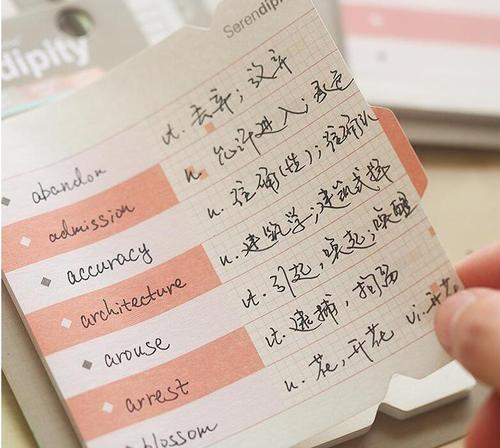 Serendip
dipity
abandon vt. 丢弃；放弃
admission n. 允许进入；承
accuracy n. 准确(性)；
architecture n. 建筑学；建筑式样
arouse vt. 引起，唤起；唤醒
arrest vt. 逮捕，拘留
blossom n. 花，开花 vi. 开花